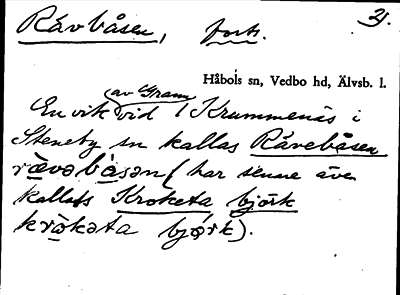 Rävbåsen, forts. 2).
Håbols sn, Vedbo hd, Älvsb. l.
av Grann
En vik vid Krummenäs i
Steneby sn kallas Rävebåsen
rävabåsən (har senare även
kallats Kroketa björk
krokəta björk).